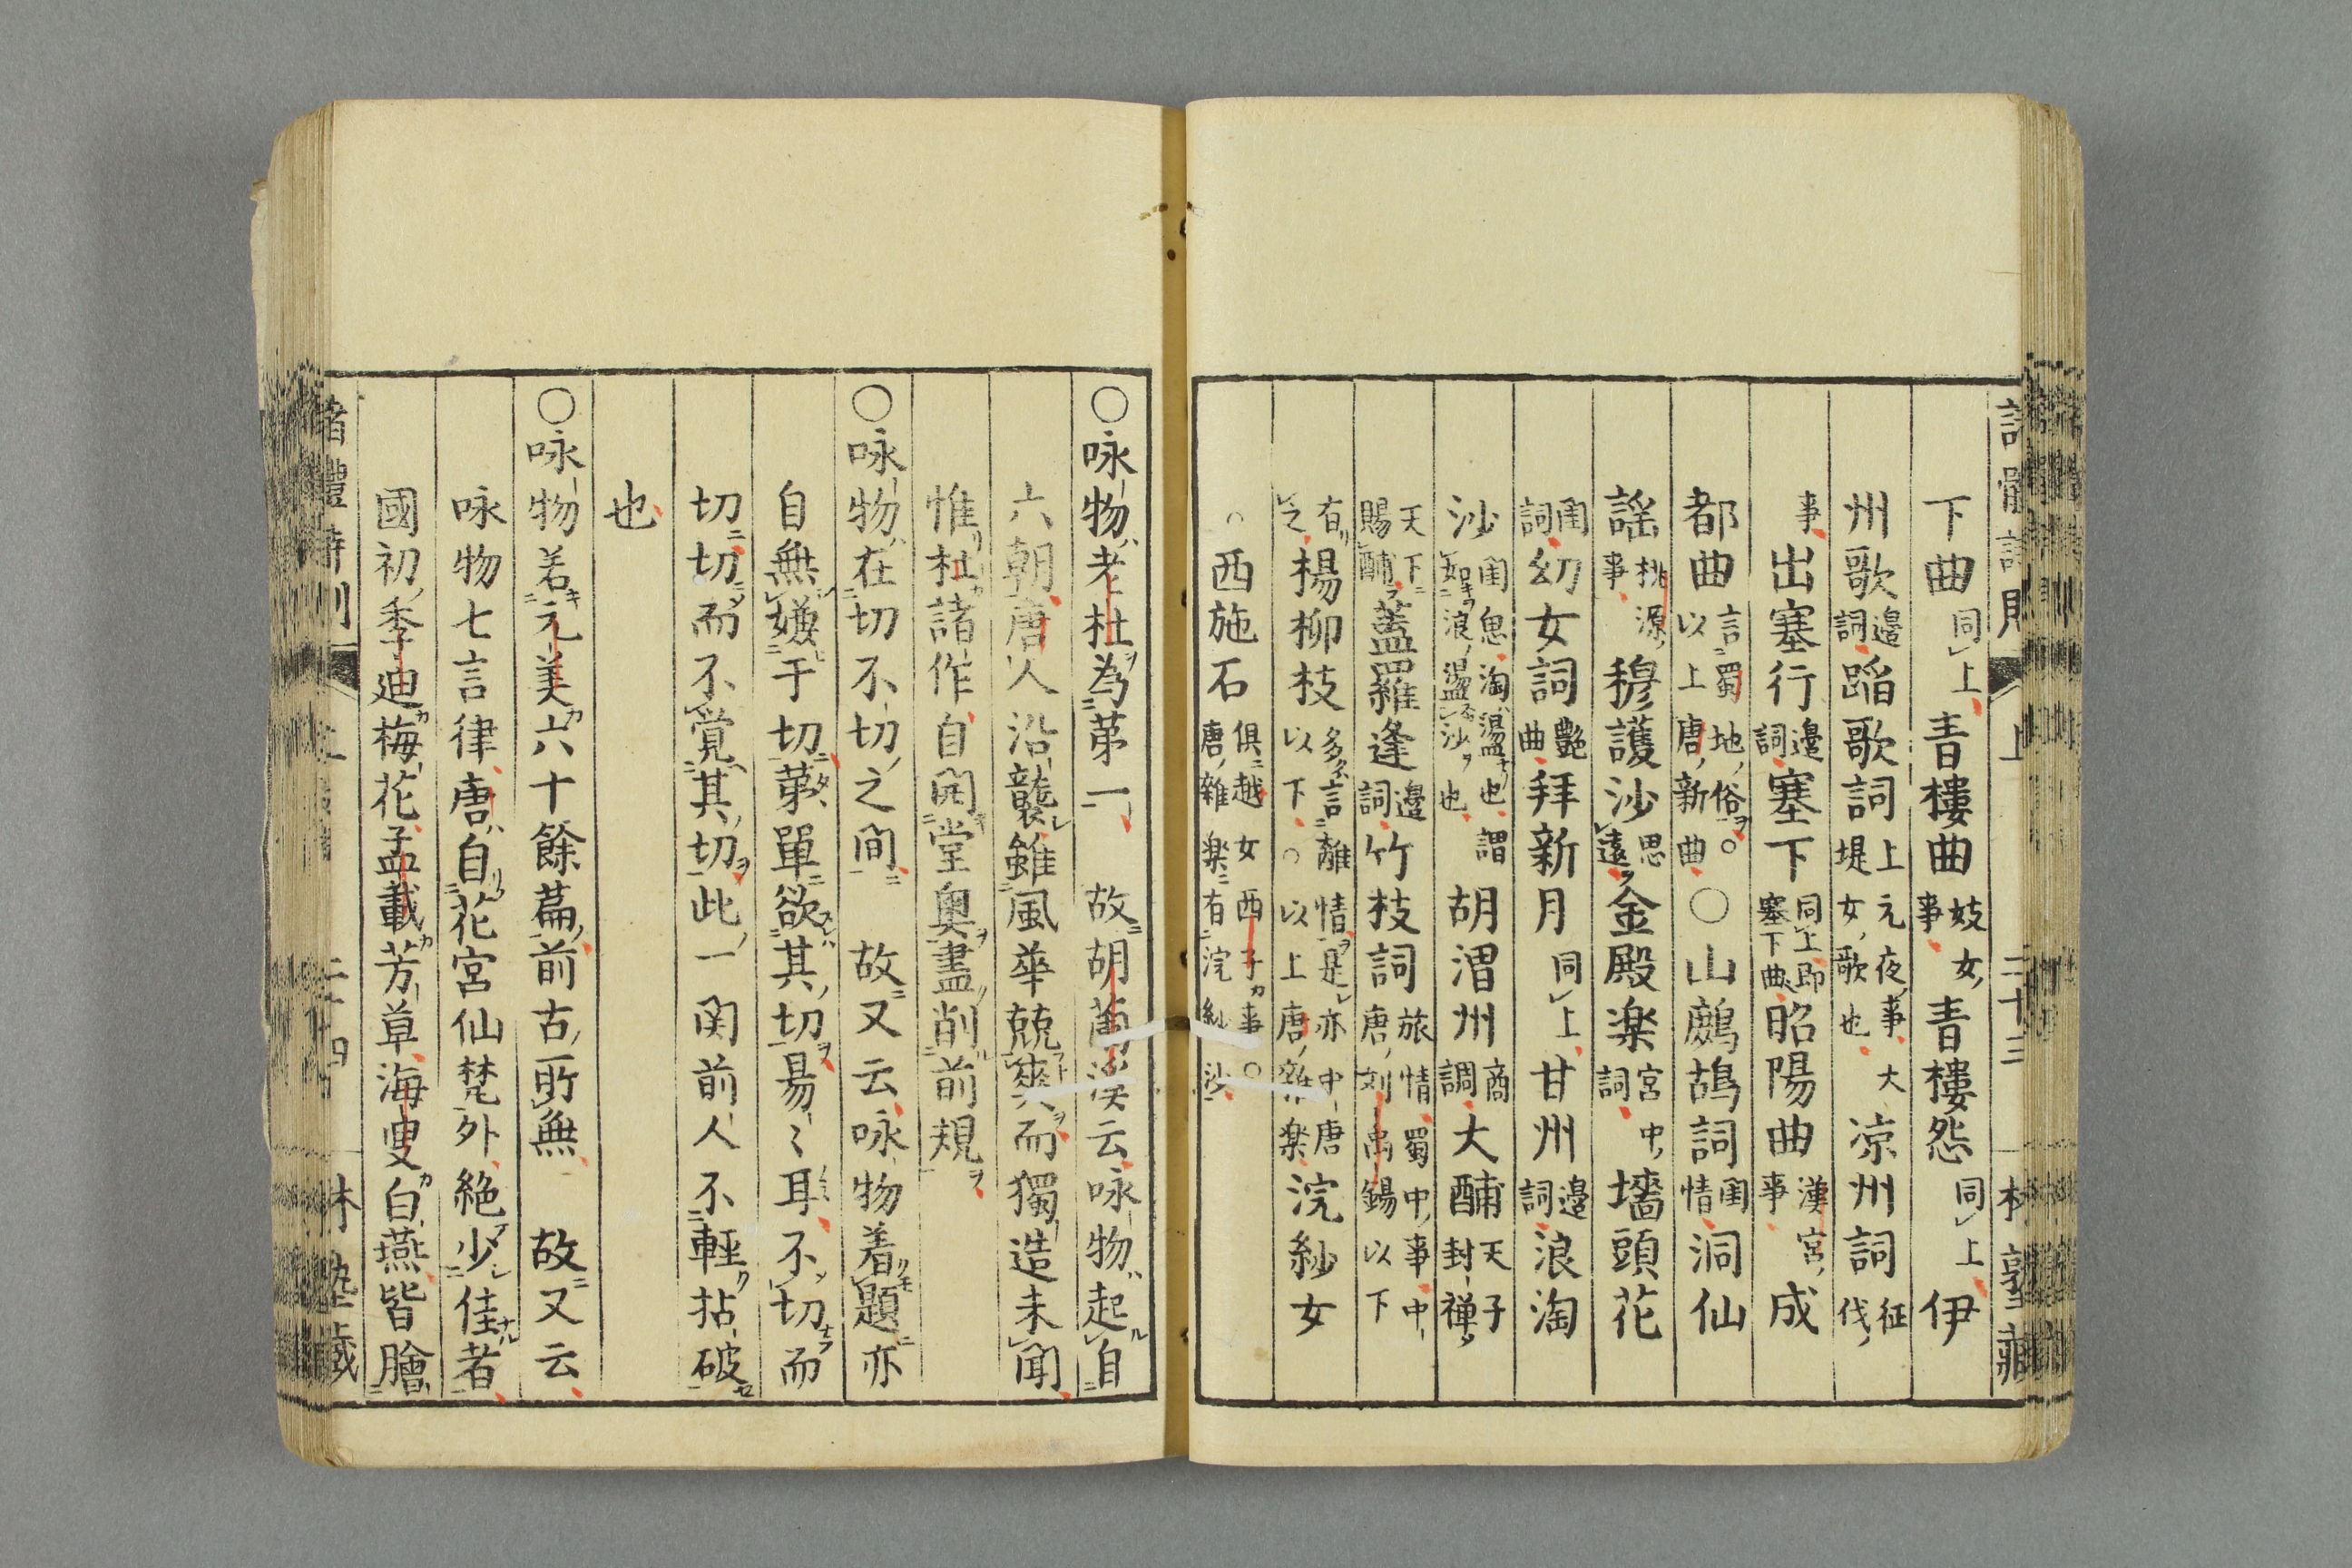 下曲同上青樓曲妓女事青樓怨同上伊
州歌邊詞蹈歌詞上元夜事大堤女歌也涼州詞征伐
事出塞行邊詞塞下同上即塞下曲昭陽曲漢宮事成
都曲言蜀地俗以上唐新曲○山鷓鴣詞閨情洞仙
謡桃源事穆護沙思遠金殿楽宮中詞墻頭花
閨詞幼女詞艷曲拜新月同上甘州邊詞浪淘
沙閨思淘盪也謂如浪盪沙也胡渭州商調大酺天子封禅
天下賜酺蓋羅逢邊詞竹枝詞旅情蜀中事中唐劉禹錫以下
有之楊柳枝多言離情是亦中唐以下○以上唐雜楽浣紗女
○西施石俱越女西子事○唐雜楽有浣紗沙
○咏物老杜為第一 故胡云咏物起自
六朝唐人沿襲雖風華競爽而獨造未聞
惟杜諸作自開堂奥盡削前規
○咏物在切不切之間 故又云咏物着題亦
自無嫌于切第單欲其切易〻耳不切而
切切而不覚其切此一関前人不輕拈破
也
○咏物若元美六十餘篇前古所無 故又云
咏物七言律唐自花宮仙梵外絶少佳者
國初季迪梅花孟載芳草海叟白燕皆膾